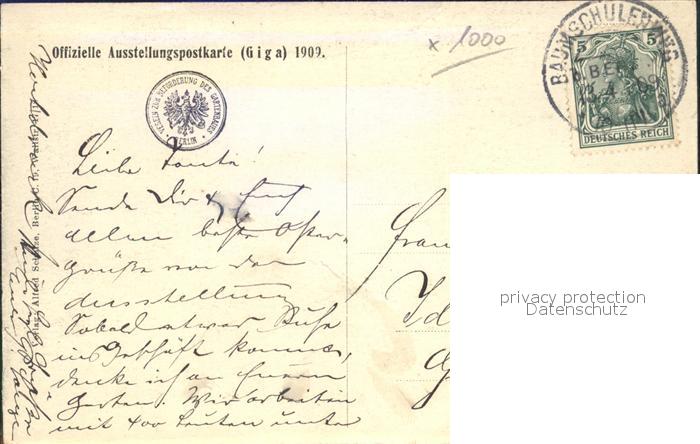 Offizielle Ausstellungspostkarte (Giga) 1909.
x 1000
BAUMSCHULENWEG
5 5
DEUTSCHES REICH
VEREIN ZUR BEFÖRDERUNG DES GARTENBAUES
BERLIN
Liebe Tante!
Sende Dir &
allen beste Oster-
grüße von der
Ausstellung
Sobald etwas Ruhe
ins Geschäft kommt,
denke ich an Euern
Garten. Wir arbeiten
mit 400 Leuten unter
Frau
Id
privacy protection
Datenschutz
Verlag Alfred Schütze, Berlin